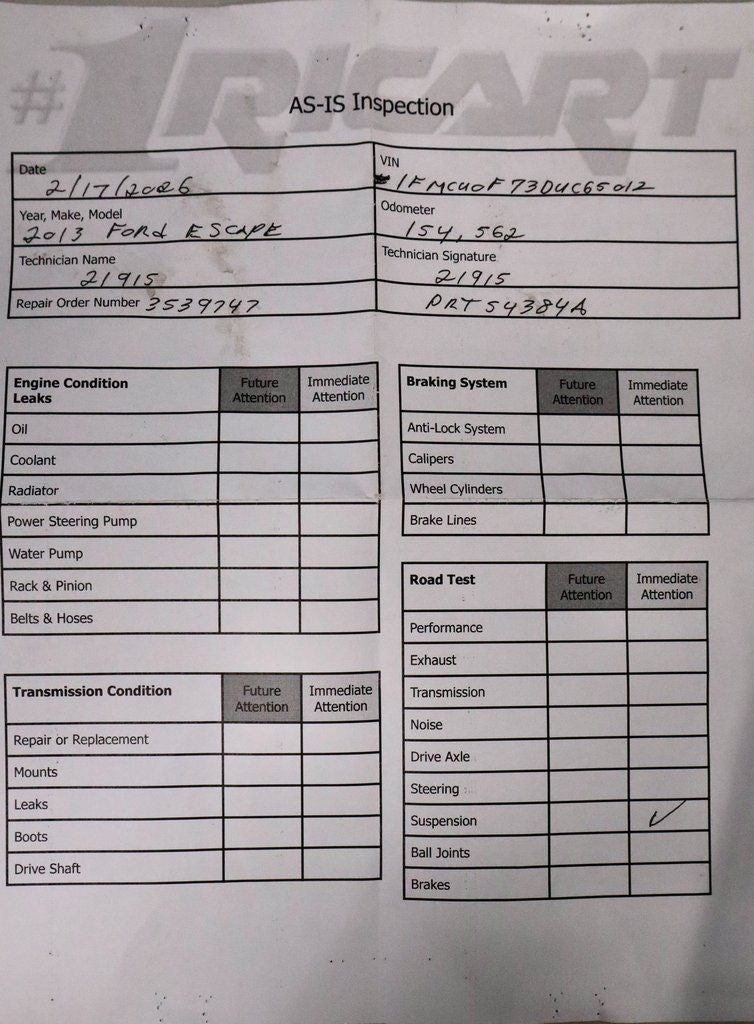 #1 RICART
AS-IS Inspection
Date
2/17/2026
VIN
1FMCU0F73DUC65012
Year, Make, Model
2013 FORd ESCAPE
Odometer
154,562
Technician Name
21915
Technician Signature
21915
Repair Order Number 3539747
PRT54384A
Engine Condition Leaks Future Attention Immediate Attention
Oil
Coolant
Radiator
Power Steering Pump
Water Pump
Rack & Pinion
Belts & Hoses
Transmission Condition Future Attention Immediate Attention
Repair or Replacement
Mounts
Leaks
Boots
Drive Shaft
Braking System Future Attention Immediate Attention
Anti-Lock System
Calipers
Wheel Cylinders
Brake Lines
Road Test Future Attention Immediate Attention
Performance
Exhaust
Transmission
Noise
Drive Axle
Steering
Suspension ✓
Ball Joints
Brakes